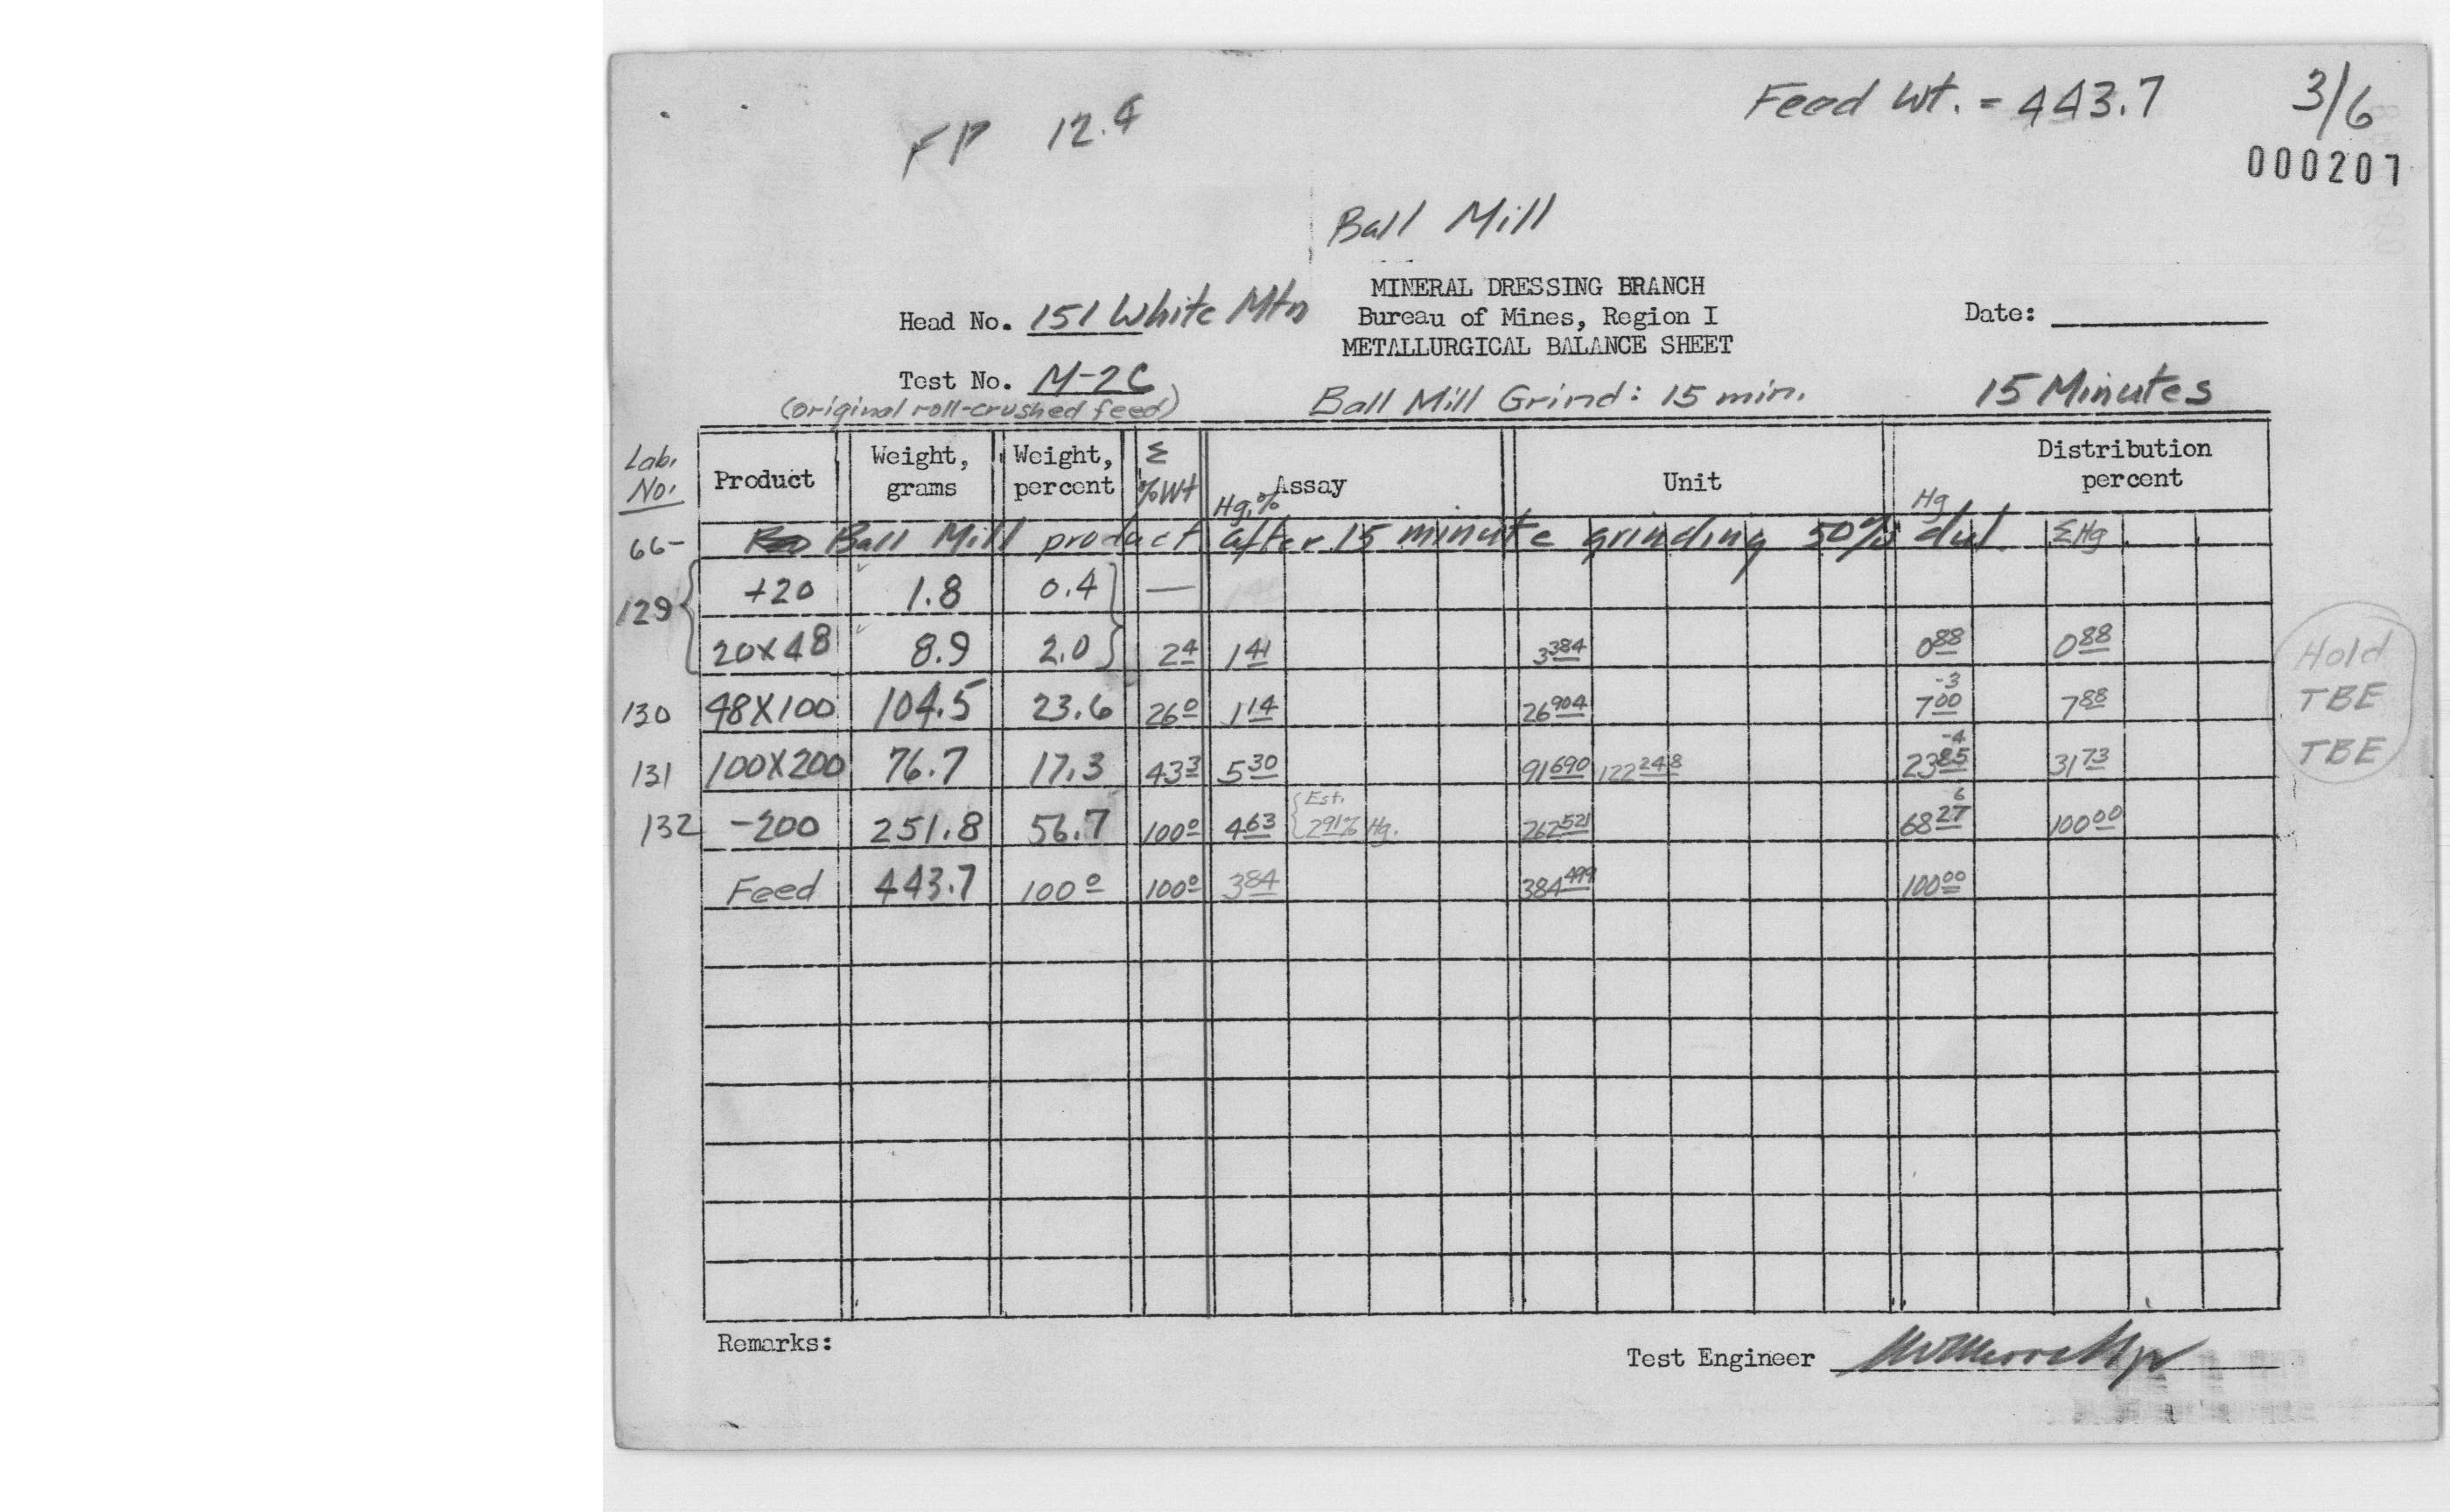 FP 12.4
Feed Wt. = 443.7
3/6
000207
Ball Mill
MINERAL DRESSING BRANCH
Head No. 151 White Mtn
Bureau of Mines, Region I
Date:
METALLURGICAL BALANCE SHEET
Test No. M-2C
(original roll-crushed feed)
Ball Mill Grind: 15 min.
15 Minutes
Lab. No. Product Weight, grams Weight, percent Σ %Wt Assay Hg,% Unit Distribution percent Hg
66- Ball Mill product after 15 minute grinding 50% dil. ΣHg
129 { +20 1.8 0.4 } —
20X48 8.9 2.0 2.4 1.41 3.384 0.88 0.88
130 48X100 104.5 23.6 26.0 1.14 26.904 -3 7.00 7.88
131 100X200 76.7 17.3 43.3 5.30 91.690 122.248 -4 23.85 31.73
132 -200 251.8 56.7 100.0 4.63 { Est. 2.91% Hg. 262.521 6 68.27 100.00
Feed 443.7 100.0 100.0 3.84 384.499 100.00
Hold
TBE
TBE
Remarks:
Test Engineer